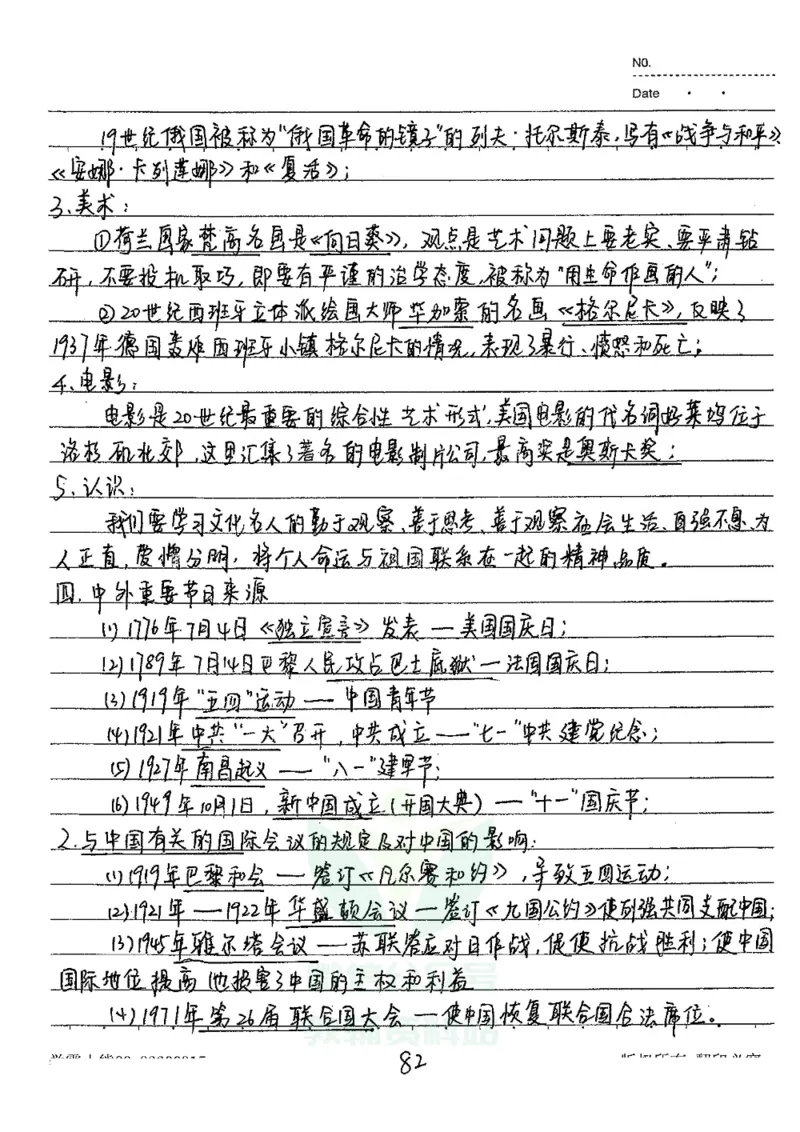 NO.
Date
19世纪俄国被称为"俄国革命的镜子"的列夫·托尔斯泰,写有《战争与和平》
《安娜·卡列莲娜》和《复活》;
3、美术:
①荷兰画家梵高名画是《向日葵》,观点是艺术问题上要老实、要严肃钻
研,不要投机取巧,即要有严谨的治学态度,被称为"用生命作画的人";
②20世纪西班牙立体派绘画大师毕加索的名画《格尔尼卡》,反映了
1937年德国轰炸西班牙小镇格尔尼卡的情况,表现了暴行、愤怒和死亡;
4、电影:
电影是20世纪最重要的综合性艺术形式,美国电影的代名词好莱坞位于
洛杉矶北郊,这里汇集了著名的电影制片公司,最高奖是奥斯卡奖;
5、认识:
我们要学习文化名人的勤于观察、善于思考、善于观察社会生活、自强不息、为
人正直,爱憎分明,将个人命运与祖国联系在一起的精神品质。
四、中外重要节日来源
(1)1776年7月4日《独立宣言》发表—美国国庆日;
(2)1789年7月14日巴黎人民攻占巴士底狱—法国国庆日;
(3)1919年"五四"运动——中国青年节
(4)1921年中共"一大"召开,中共成立——"七一"中共建党纪念;
(5)1927年南昌起义——"八一"建军节;
(6)1949年10月1日,新中国成立(开国大典)—"十一"国庆节;
2.与中国有关的国际会议的规定及对中国的影响:
(1)1919年巴黎和会—签订《凡尔赛和约》,导致五四运动;
(2)1921年—1922年华盛顿会议—签订《九国公约》使列强共同支配中国;
(3)1945年雅尔塔会议—苏联答应对日作战,促使抗战胜利;使中国
国际地位提高 也损害了中国的主权和利益
(4)1971年第26届联合国大会—使中国恢复联合国合法席位。
教辅资料站
82